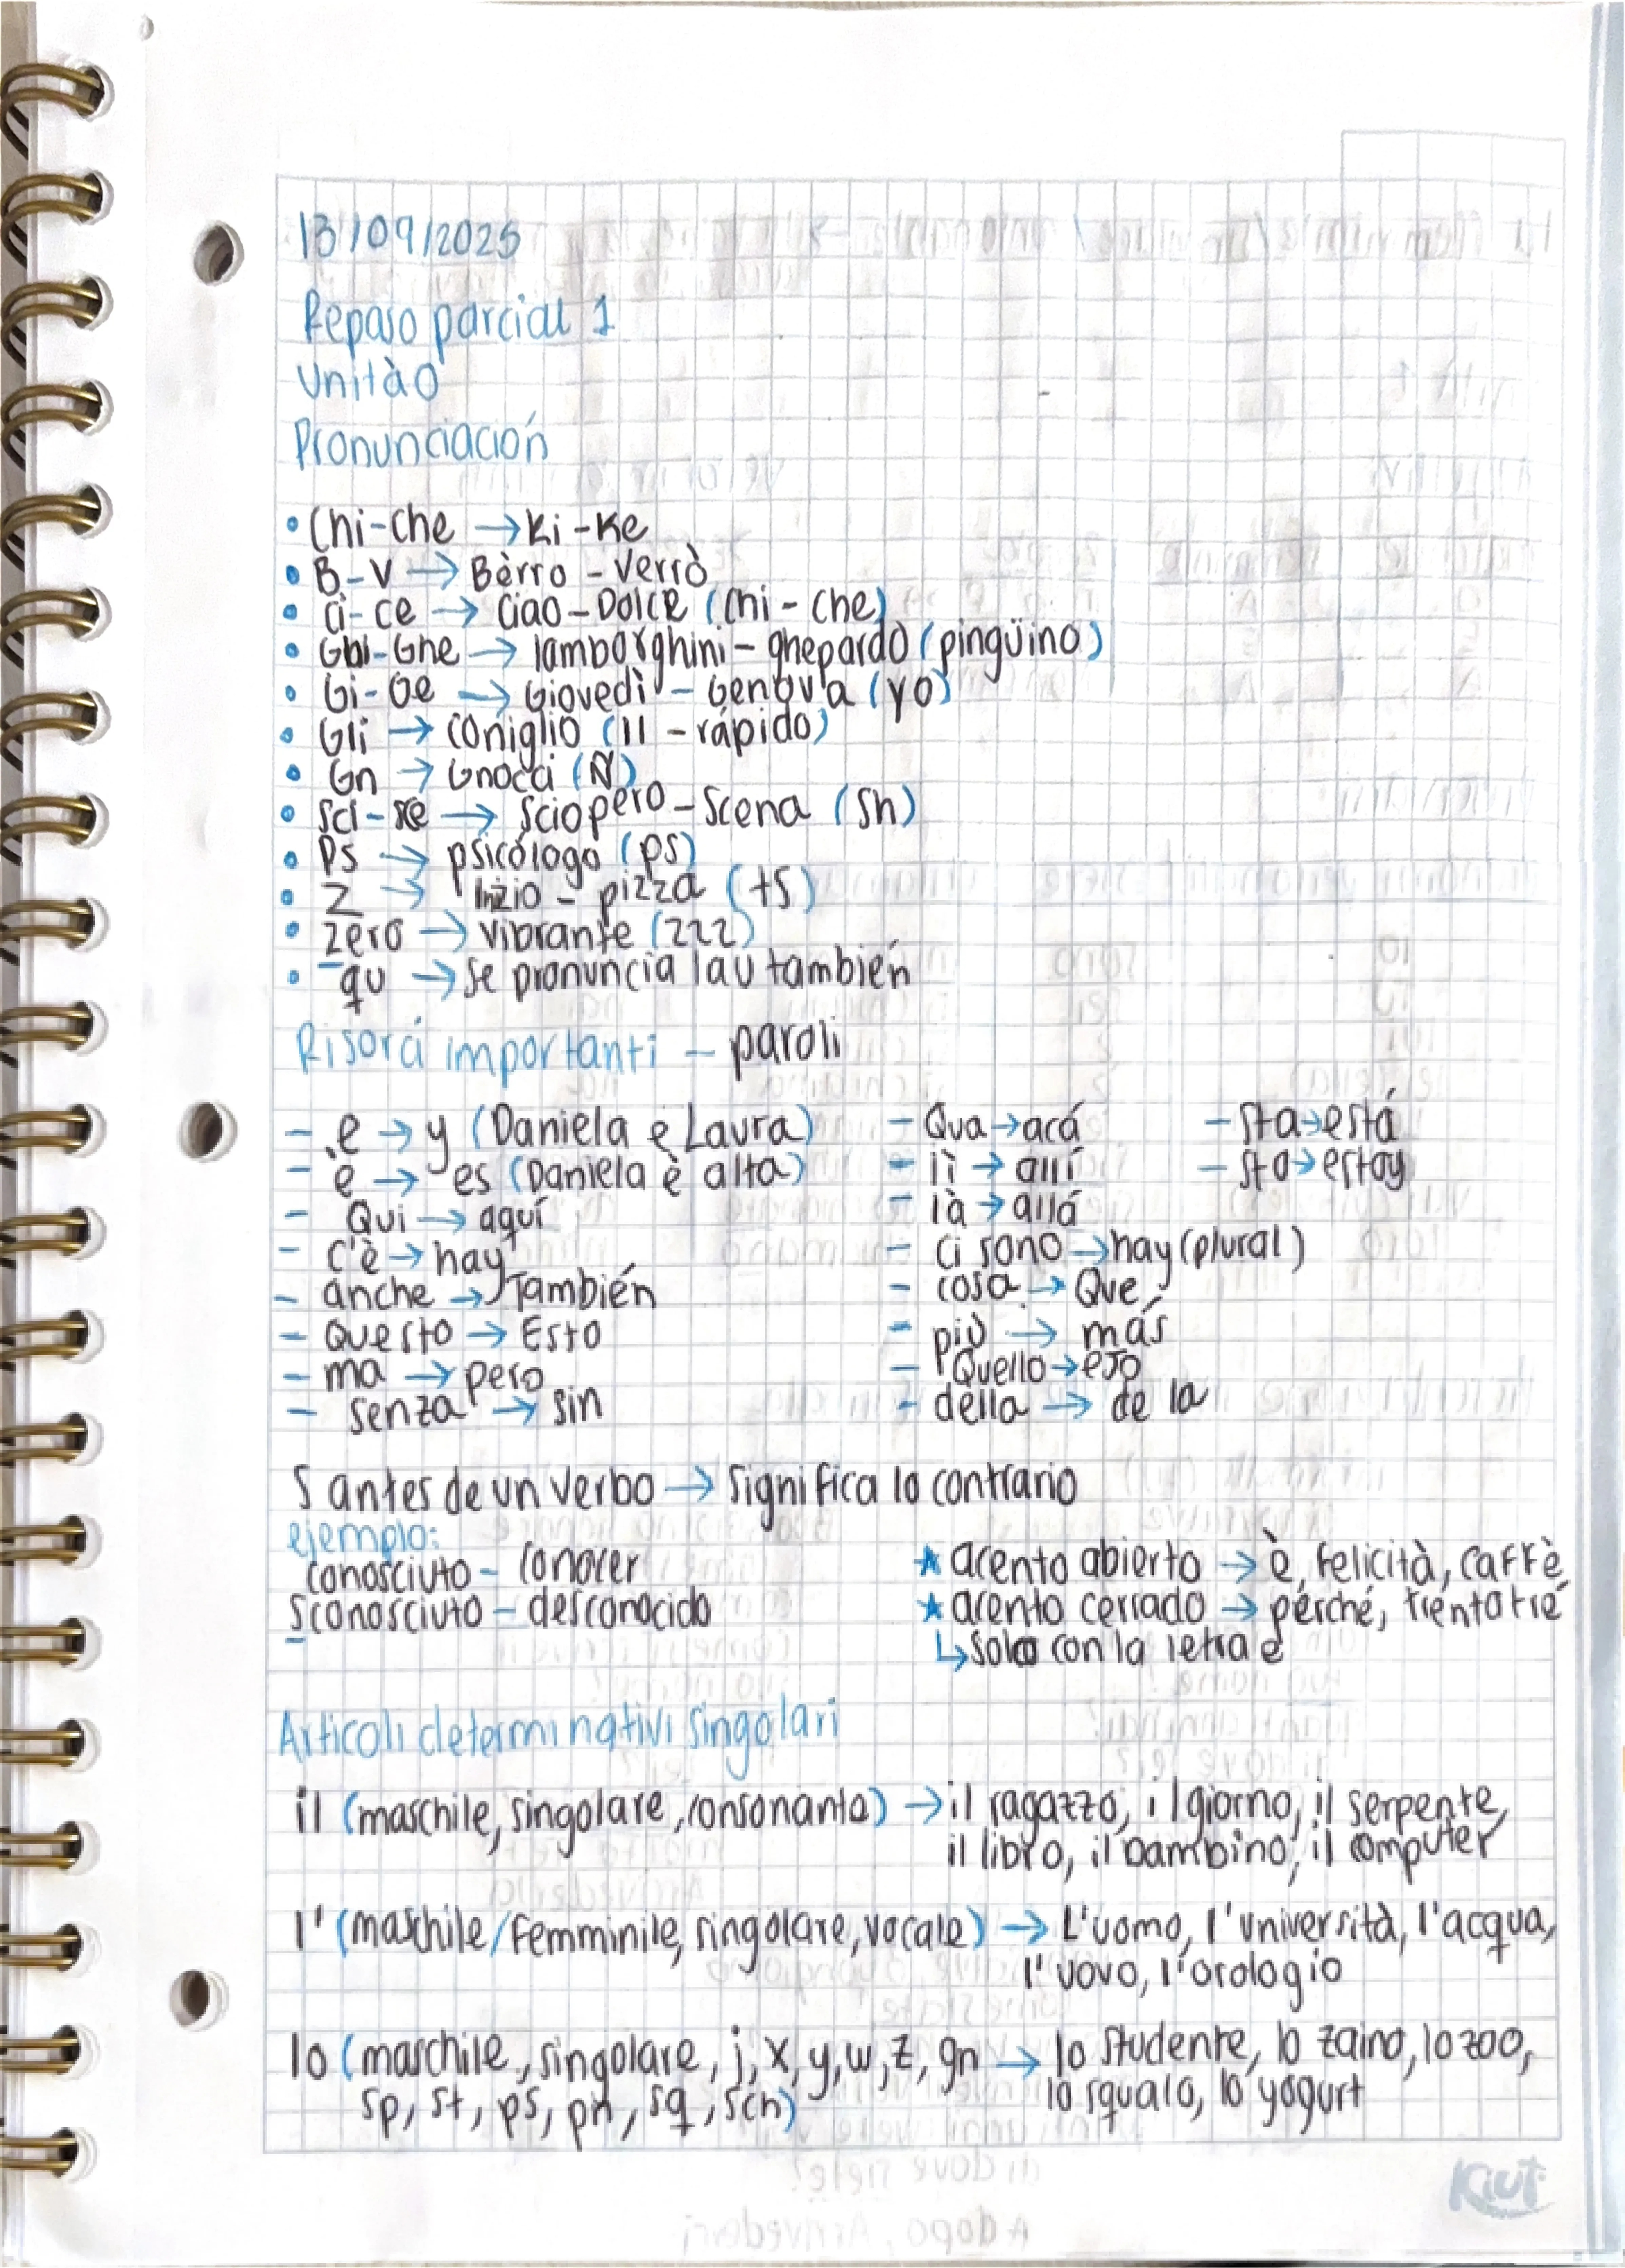 13/09/2025
Repaso parcial 1
Unità 0
Pronunciación
• Chi-che → Ki-Ke
• B-V → Bèrro - Verrò
• Ci-ce → Ciao - Dolce (Chi - che)
• Ghi-Ghe → lamborghini - ghepardo (pingüino)
• Gi-Ge → Giovedì - Genova (yo)
• Gli → coniglio (ll - rápido)
• Gn → Gnocci (Ñ)
• Sci-sce → Sciopero - Scena (Sh)
• Ps → psicólogo (ps)
• Z → Inizio - pizza (ts)
• Zero → vibrante (zzz)
• qu → se pronuncia la u también
importanti - paroli
- e → y (Daniela e Laura)
- è → es (Daniela è alta)
- Qui → aquí
- c'è → hay
- anche → También
- Questo → Esto
- ma → pero
- senza → sin
- Qua → acá
- lì → allí
- là → allá
- ci sono → hay (plural)
- cosa → Que
- più → más
- Quello → eso
- della → de la
- sta → está
- sto → estoy
S antes de un verbo → Significa lo contrario
ejemplo:
conosciuto - conocer
sconosciuto - desconocido
★ acento abierto → è, felicità, caffè
★ acento cerrado → perché, trentatré
↳ solo con la letra e
Articoli determinativi singolari
il (maschile, singolare, consonante) → il ragazzo, il giorno, il serpente,
il libro, il bambino, il computer
l' (maschile/femminile, singolare, vocale) → L'uomo, l'università, l'acqua,
l'uovo, l'orologio
lo (maschile, singolare, j, x, y, w, z, gn → lo studente, lo zaino, lo zoo,
sp, st, ps, pn, sq, sch) lo squalo, lo yogurt
Kiut